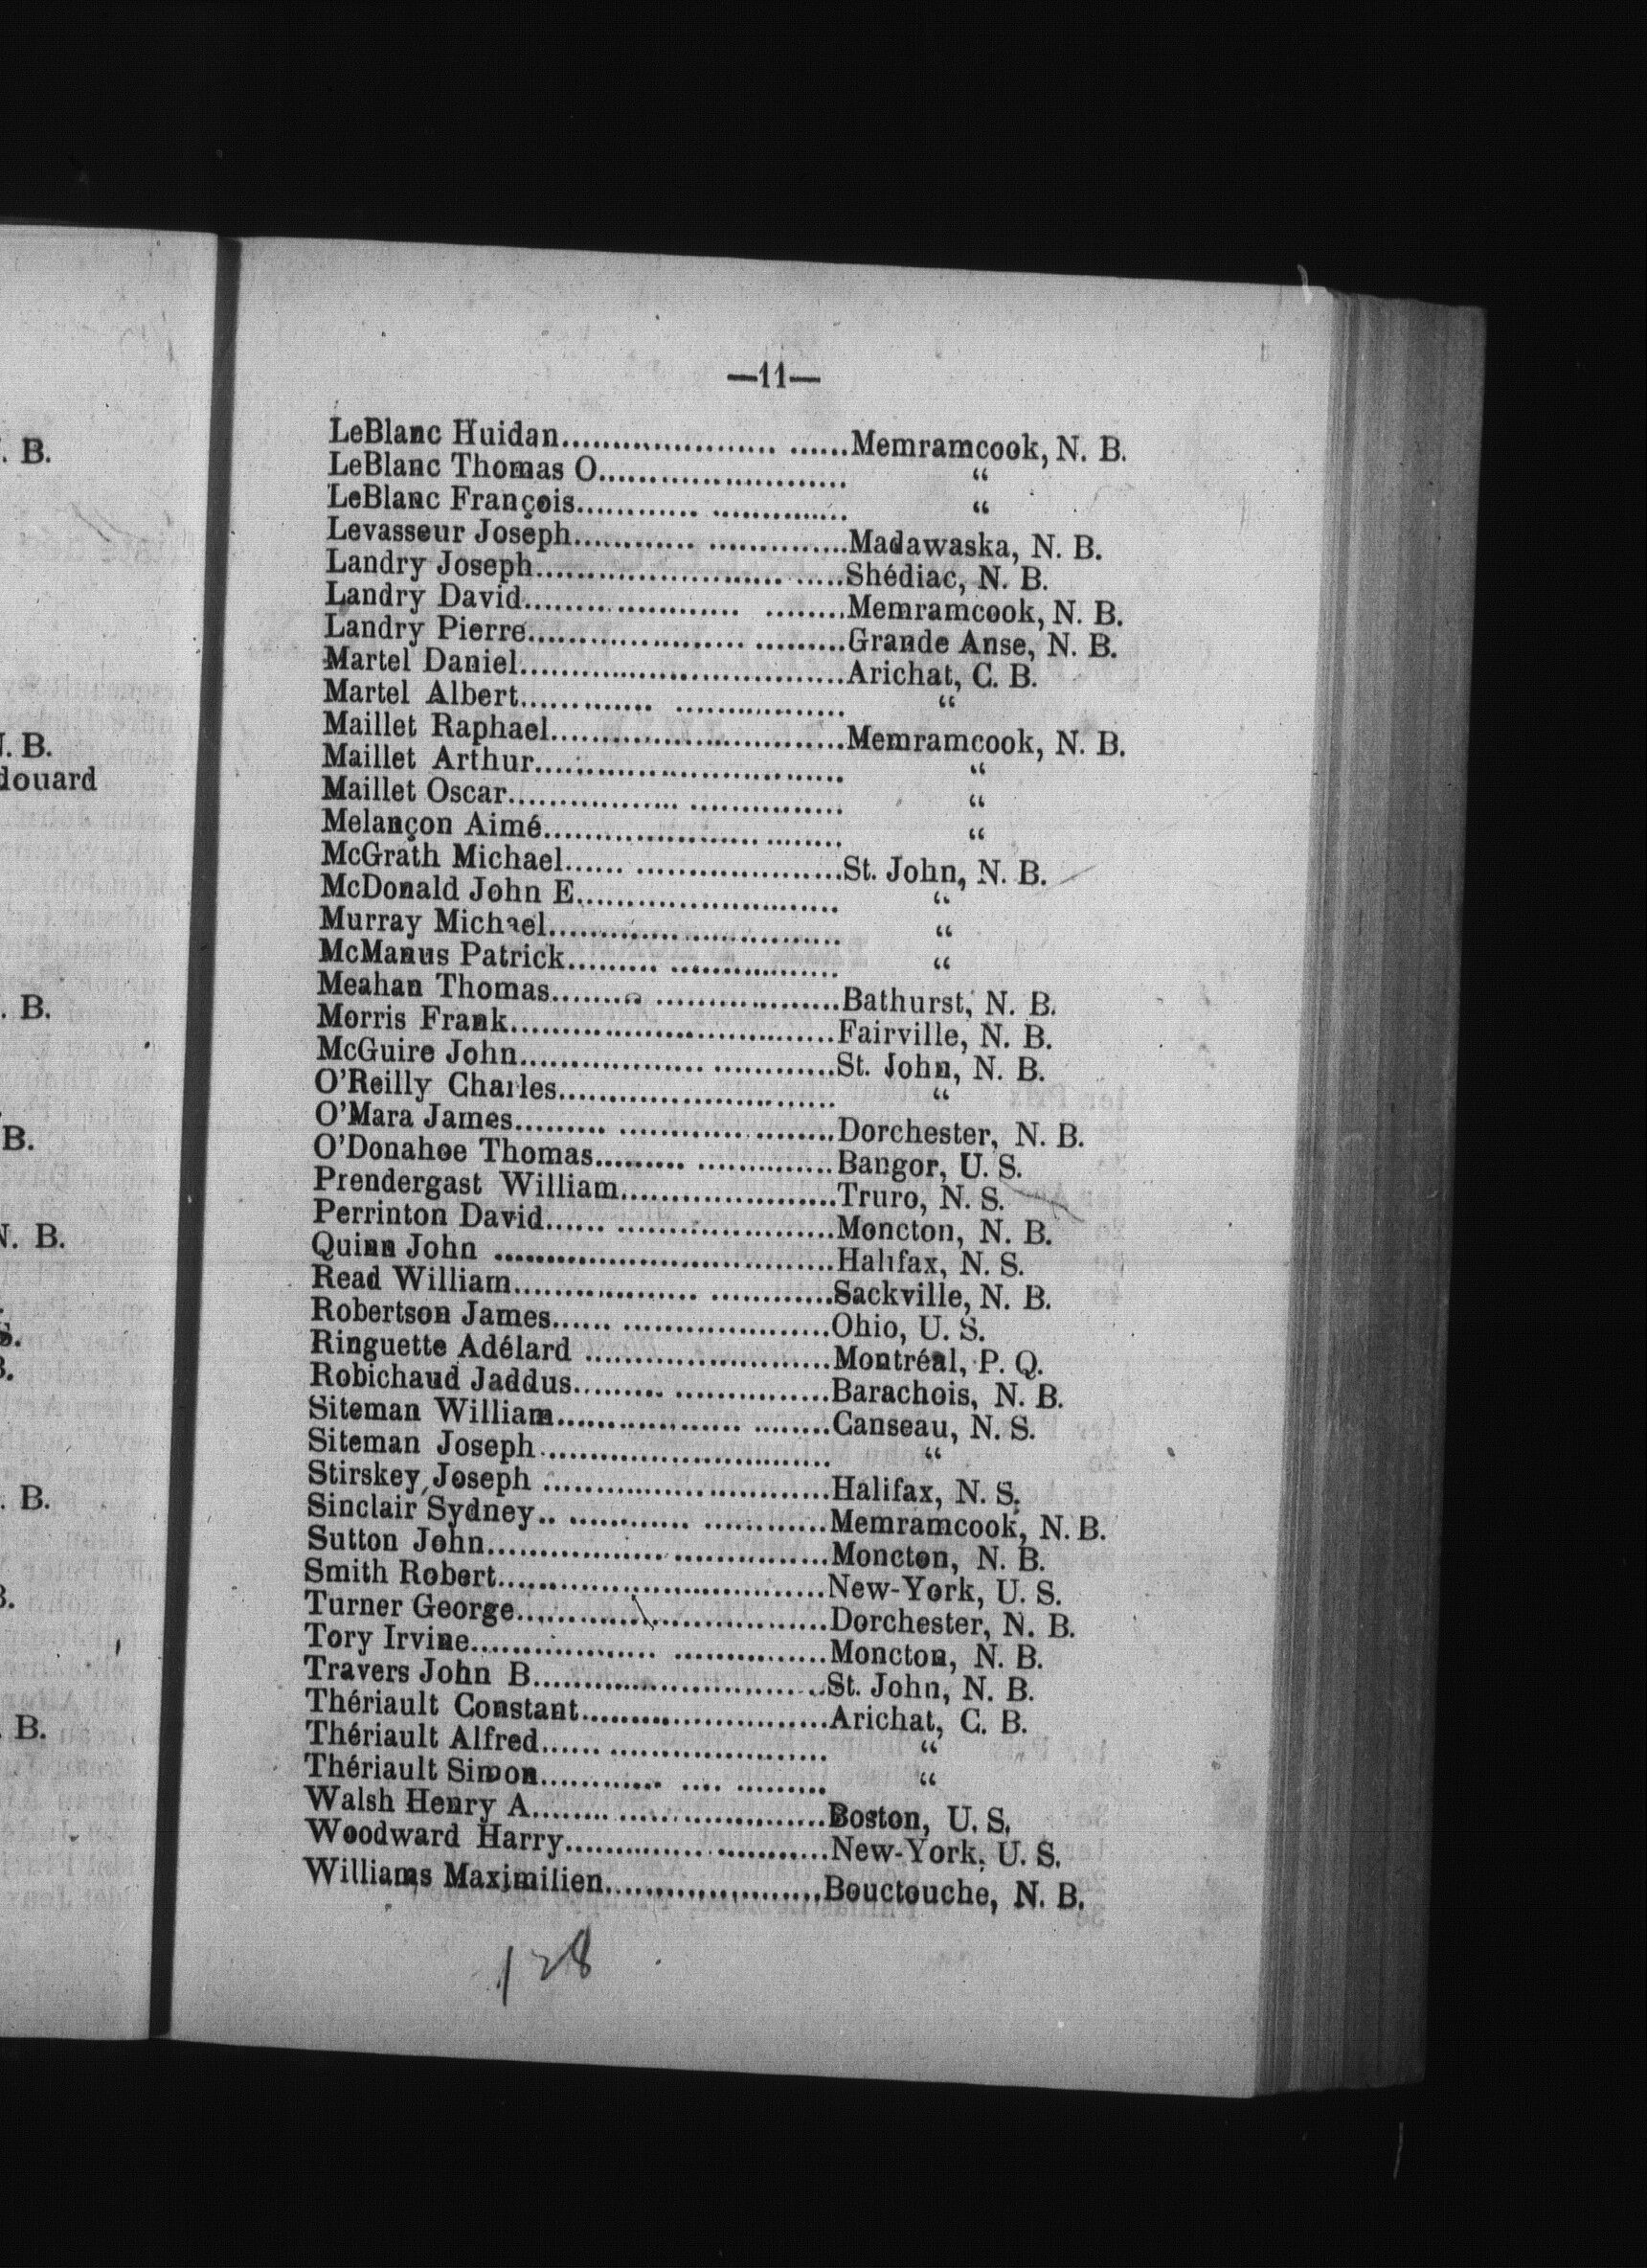 —11—
LeBlanc Huidan..........................Memramcook, N. B.
LeBlanc Thomas O........................ “
LeBlanc François.......................... “
Levasseur Joseph..........................Madawaska, N. B.
Landry Joseph.............................Shédiac, N. B.
Landry David..............................Memramcook, N. B.
Landry Pierre..............................Grande Anse, N. B.
Martel Daniel..............................Arichat, C. B.
Martel Albert.............................. “
Maillet Raphael............................Memramcook, N. B.
Maillet Arthur.............................. “
Maillet Oscar.............................. “
Melançon Aimé............................ “
McGrath Michael..........................St. John, N. B.
McDonald John E......................... “
Murray Michael............................ “
McManus Patrick.......................... “
Meahan Thomas...........................Bathurst, N. B.
Morris Frank..............................Fairville, N. B.
McGuire John..............................St. John, N. B.
O’Reilly Charles........................... “
O’Mara James..............................Dorchester, N. B.
O’Donahoe Thomas.......................Bangor, U. S.
Prendergast William.....................Truro, N. S.
Perrinton David...........................Moncton, N. B.
Quinn John ................................Halifax, N. S.
Read William..............................Sackville, N. B.
Robertson James..........................Ohio, U. S.
Ringuette Adélard ........................Montréal, P. Q.
Robichaud Jaddus........................Barachois, N. B.
Siteman William..........................Canseau, N. S.
Siteman Joseph............................ “
Stirskey Joseph ...........................Halifax, N. S.
Sinclair Sydney...........................Memramcook, N. B.
Sutton John................................Moncton, N. B.
Smith Robert..............................New-York, U. S.
Turner George.............................Dorchester, N. B.
Tory Irvine................................Moncton, N. B.
Travers John B............................St. John, N. B.
Thériault Constant........................Arichat, C. B.
Thériault Alfred........................... “
Thériault Simon........................... “
Walsh Henry A............................Boston, U. S.
Woodward Harry.........................New-York, U. S.
Williams Maximilien.....................Bouctouche, N. B.
128